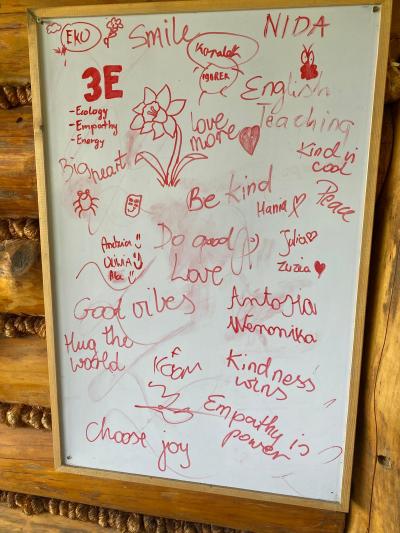 EKU
Smile
NIDA
Koralak
IGOREK
3E
- Ecology
- Empathy
- Energy
English
Teaching
Love
more
Kind is
cool
Big heart
Peace
Be kind
Hania
Andzia :)
Oliwia :)
Ala :)
Do good
Love
Julia
Zuzia
Good vibes
Antosia
Weronika
Hug the
world
Kindness
wins
Empathy is
power
Choose joy